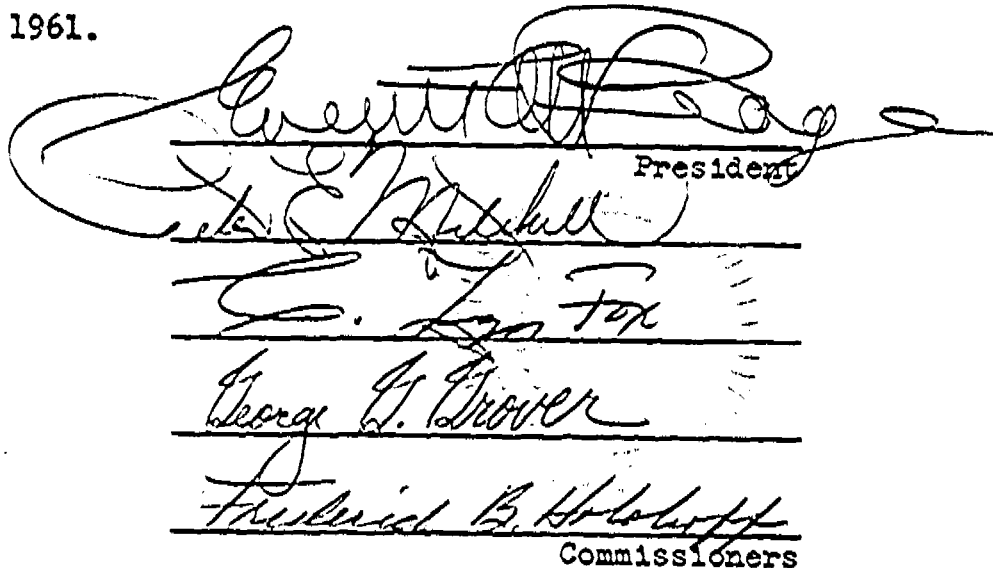 1961.
President
E. Mitchell
C. Lyn Fox
George G. Grover
Frederick B. Holoboff
Commissioners